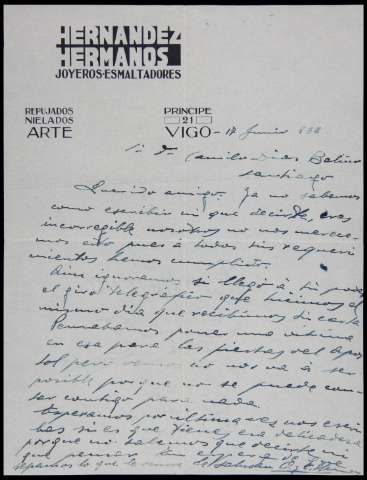 HERNANDEZ
HERMANOS
JOYEROS-ESMALTADORES
REPUJADOS
NIELADOS
ARTE
PRINCIPE
21
VIGO - 18 Junio 
Sr. Dn. Camilo Dias Baliño
Santiago
Querido amigo: Ya no sabemos
como escribir ni que decirte, eres
incorregible nosotros no nos merece-
mos esto pues á todos tus requeri-
mientos hemos cumplido.
Aún ignoramos si llegó á tu poder
el giro telegráfico que hicimos el
mismo dia que recibimos tu carta
Pensabamos poner una vitrina
en esa para las fiestas del Apos-
tol pero no nos vá á ser
posible porque no se puede con-
tar contigo para nada.
Esperamos por ultima vez nos escri-
bas si es que tienes esa delicadeza
porque no sabemos que decirte ni
que pensar en espera de que
sepamos lo que te saludan